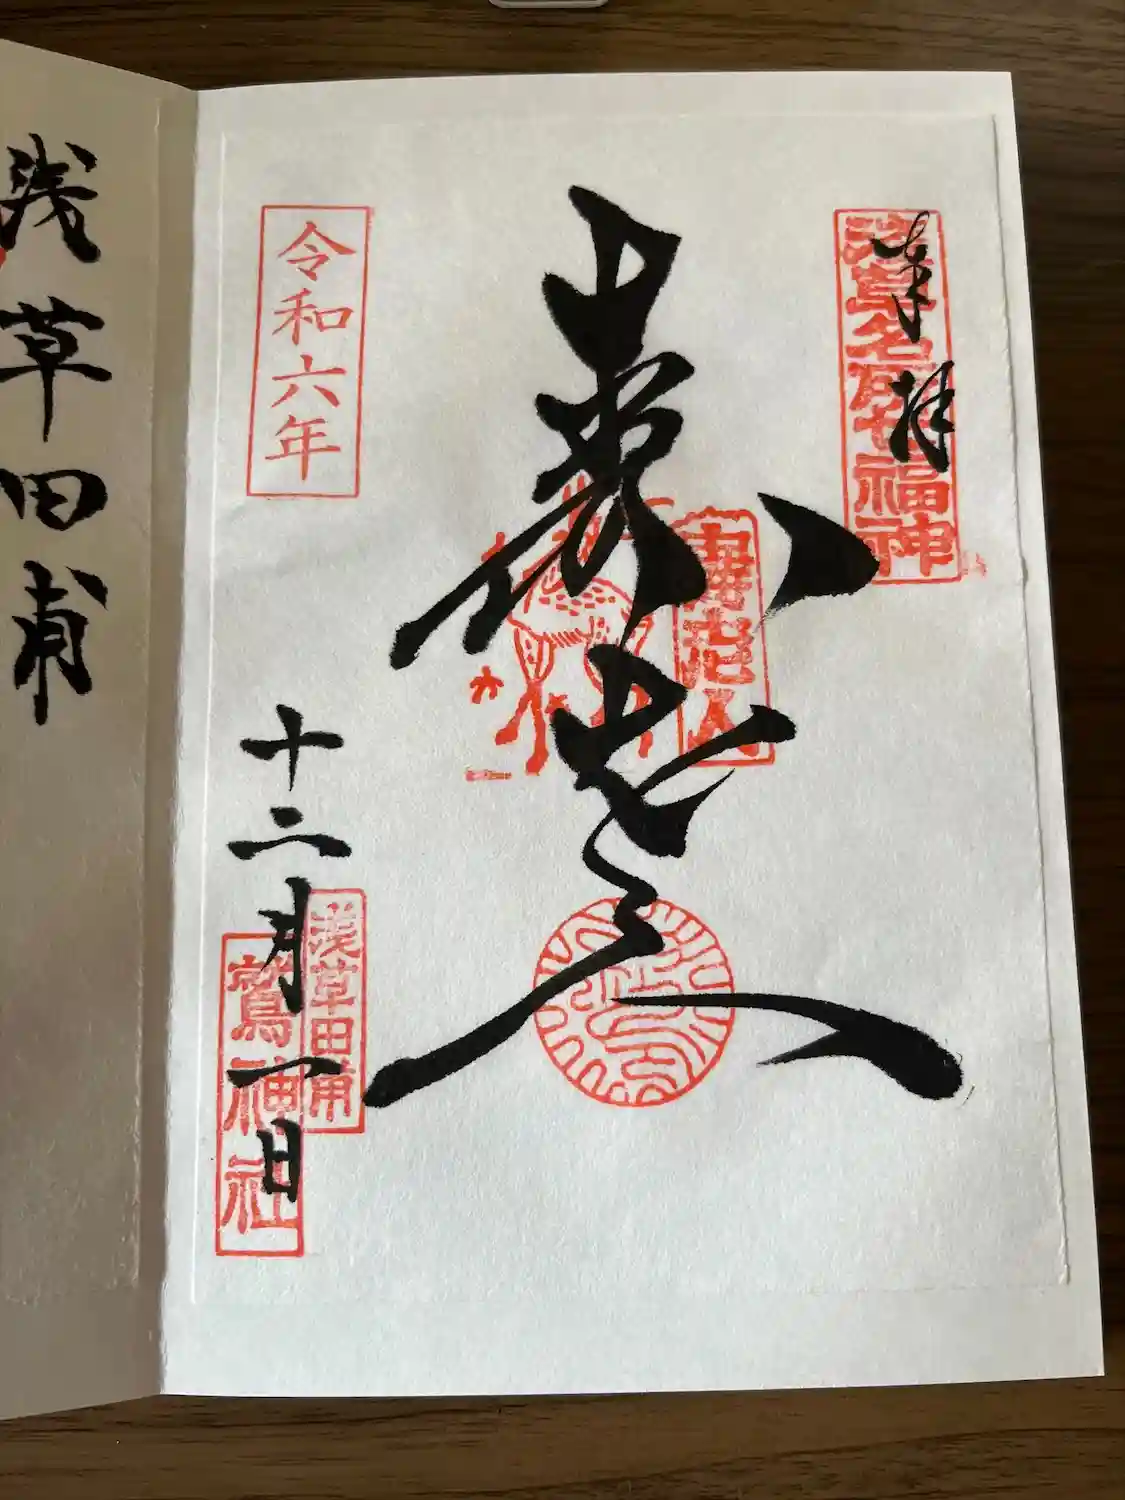 浅草名所七福神
奉拝
寿老人
寿老人
令和六年
十二月一日
浅草田甫
鷲神社
浅草田甫